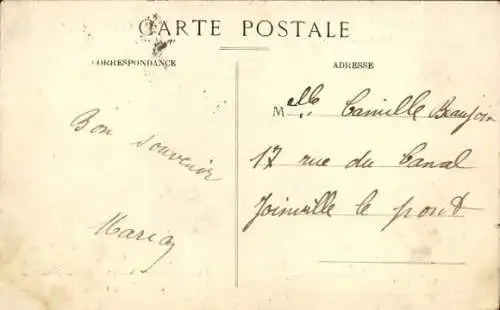 CARTE POSTALE
CORRESPONDANCE
ADRESSE
Bon souvenir
Maria
Mlle Camille Beaujon
17 rue du Canal
Joinville le pont